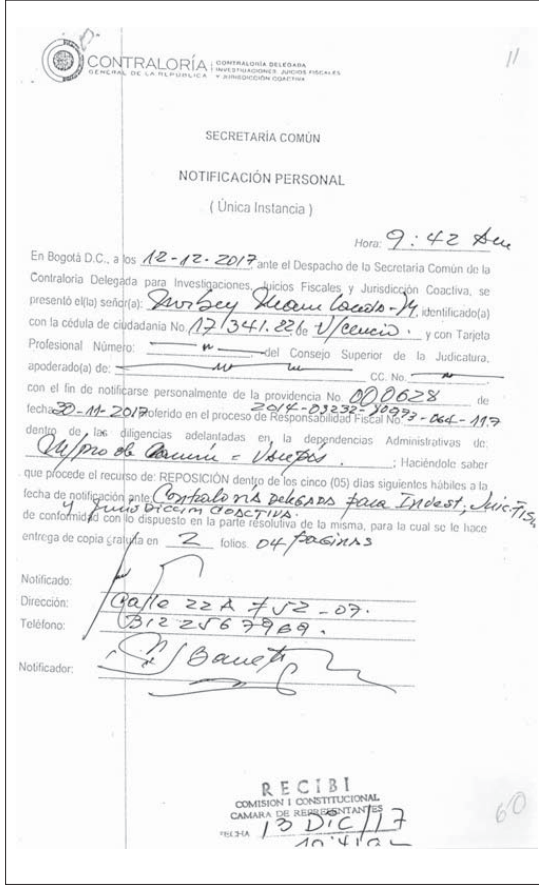 11
CONTRALORÍA
GENERAL DE LA REPÚBLICA
CONTRALORÍA DELEGADA
INVESTIGACIONES JUICIOS FISCALES
Y JURISDICCIÓN COACTIVA
SECRETARÍA COMÚN
NOTIFICACIÓN PERSONAL
( Única Instancia )
Hora: 9:42 Am
En Bogotá D.C., a los 12-12-2017, ante el Despacho de la Secretaria Común de la
Contraloría Delegada para Investigaciones, Juicios Fiscales y Jurisdicción Coactiva, se
presentó el(la) señor(a): identificado(a)
con la cédula de ciudadanía No. 17'341.22 de V/cencio. y con Tarjeta
Profesional Número: del Consejo Superior de la Judicatura,
apoderado(a) de: CC. No.
con el fin de notificarse personalmente de la providencia No. 000628 de
fecha 30-11-2017 oferido en el proceso de Responsabilidad Fiscal No. 2014-03232-
dentro de las diligencias adelantadas en la dependencias Administrativas de:
; Haciéndole saber
que procede el recurso de: REPOSICIÓN dentro de los cinco (05) días siguientes hábiles a la
fecha de notificación ante Contraloría Delegada para Invest, Juic. Fis,
y Jurisdiccion Coactiva.
de conformidad con lo dispuesto en la parte resolutiva de la misma, para la cual se le hace
entrega de copia gratuita en 2 folios. 04 paginas
Notificado:
Dirección: Calle 22A # 52-07.
Teléfono: 312 2567969.
Notificador:
RECIBI
COMISION I CONSTITUCIONAL
CAMARA DE REPRESENTANTES
FECHA 13 Dic/17
60